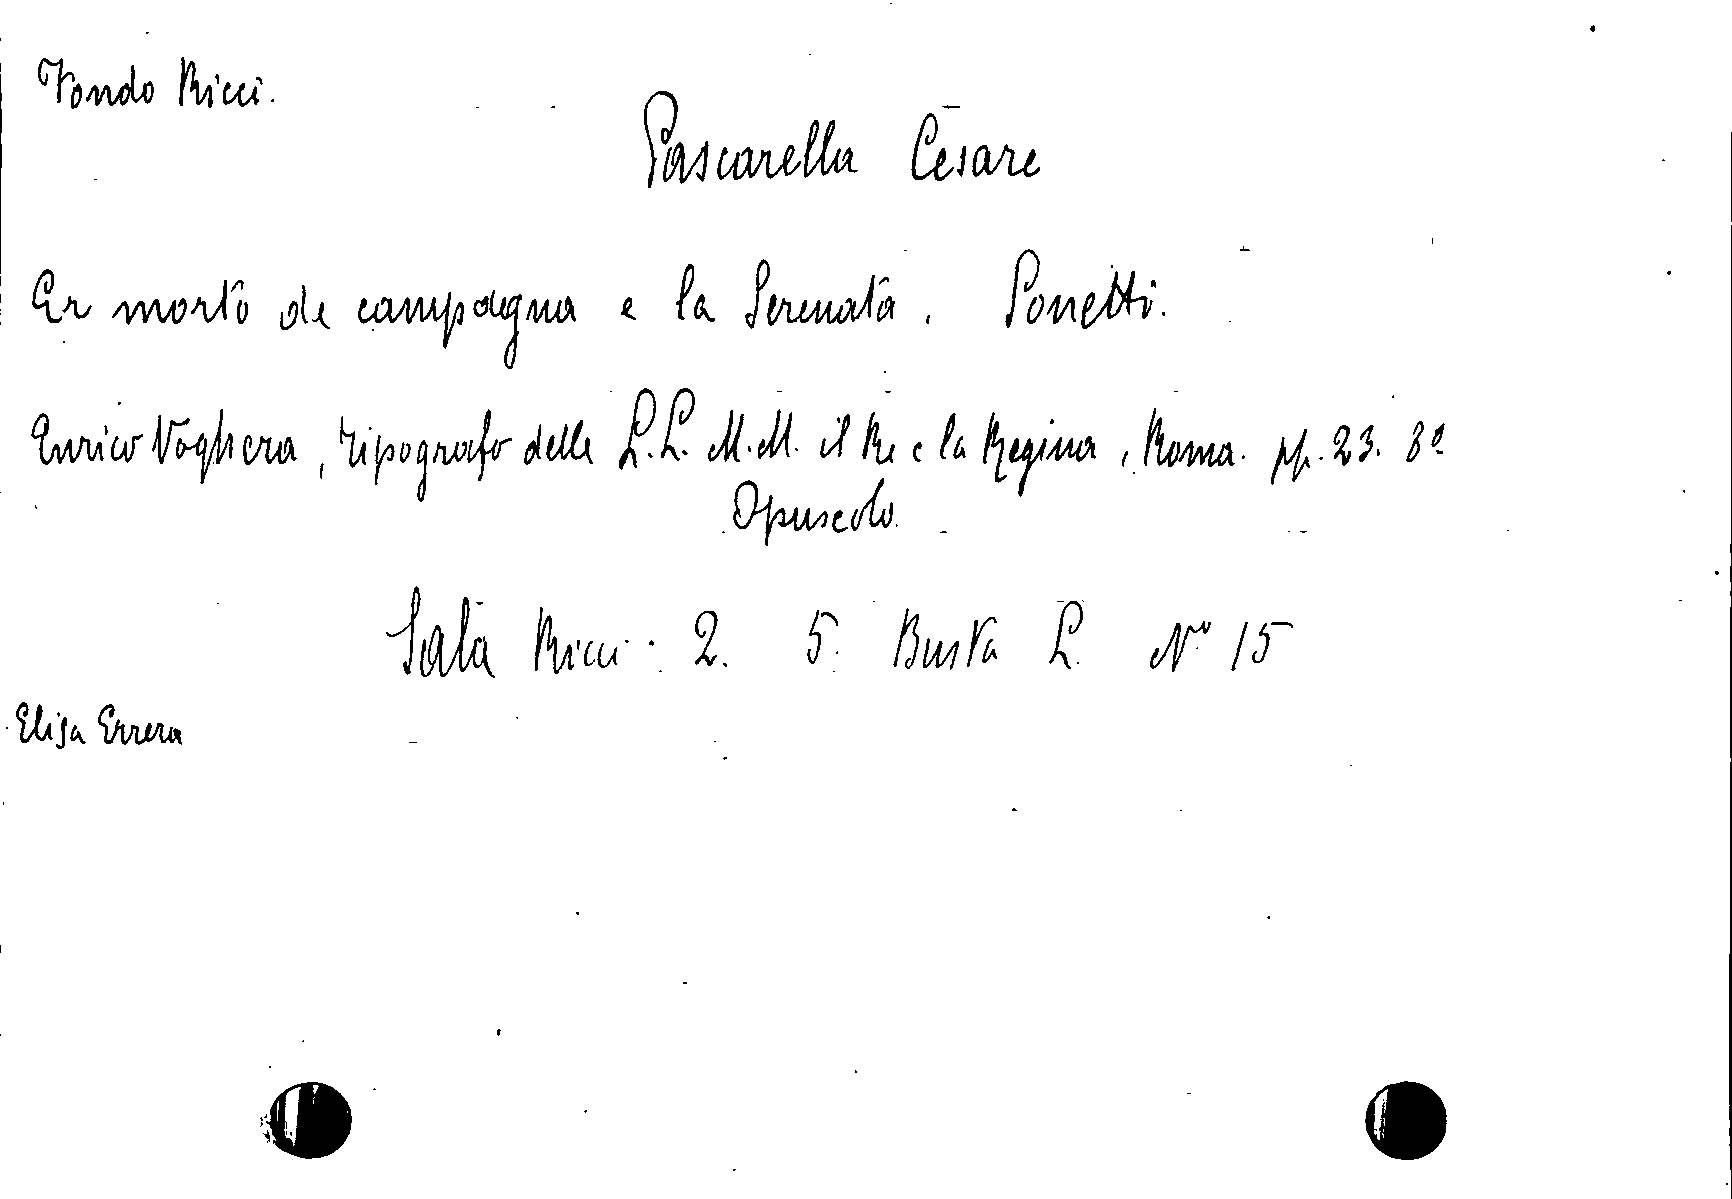 Fondo Ricci.
Pascarella Cesare
Er morto de campagna e la Serenata. Sonetti.
Enrico Voghera, tipografo delle L.L. M.M. il Re e la Regina, Roma. pp. 23. 8º
Opuscolo.
Sala Ricci. 2. 5. Busta L. Nº 15
Elisa Errera